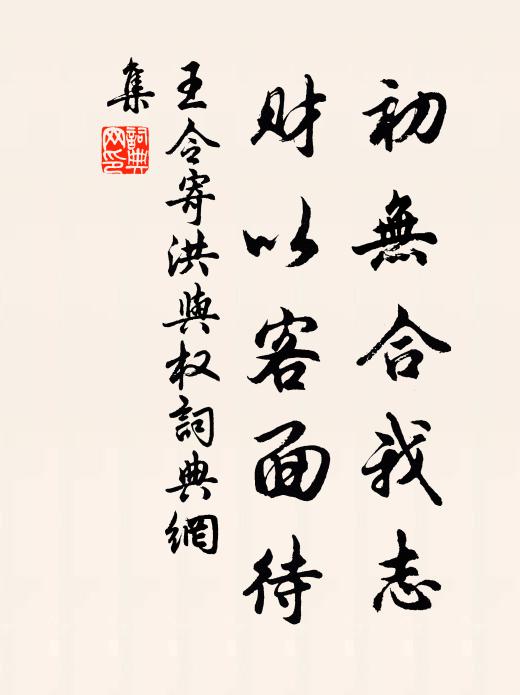 初無合我志
財以客面待
王令寄洪與权詞典網
集
詞典網印